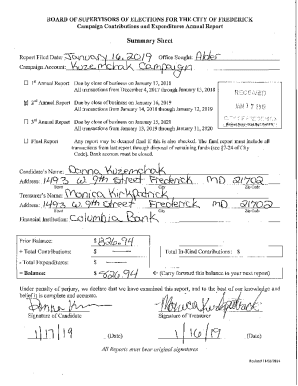 BOARD OF SUPERVISORS OF ELECTIONS FOR THE CITY OF FREDERICK
Campaign Contributions and Expenditures Annual Report
Summary Sheet
Report Filed Date: January 16, 2019 Office Sought: Alder
Campaign Account: Kuzemchak Campaign
☐ 1st Annual Report Due by close of business on January 17, 2018
All transactions from December 4, 2017 through January 13, 2018
☑ 2nd Annual Report Due by close of business on January 16, 2019
All transactions from January 14, 2018 through January 12, 2019
☐ 3rd Annual Report Due by close of business on January 15, 2020
All transactions from January 13, 2019 through January 11, 2020
RECEIVED
☐ Final Report Any report may be deemed final if this is also checked. The final report must include all
transactions from last report through disposal of remaining funds (see §2-24 of City
Code). Bank account must be closed.
Candidate's Name: Donna Kuzemchak
Address: 1493 W. 9th Street Frederick MD 21702
Street City Zip Code
Treasurer's Name: Monica Kirkpatrick
Address: 1493 W. 9th Street Frederick MD 21702
Street City Zip Code
Financial Institution: Columbia Bank
Prior Balance: $ 826.94
+ Total Contributions: $ — Total In-Kind Contributions: $ —
- Total Expenditures: $ —
= Balance: $ 826.94 (Carry forward this balance to your next report)
Under penalty of perjury, we declare that we have examined this report, and to the best of our knowledge and
belief it is complete and accurate.
Signature of Candidate Signature of Treasurer
1/17/19 (Date) 1/16/19 (Date)
All Reports must bear original signatures